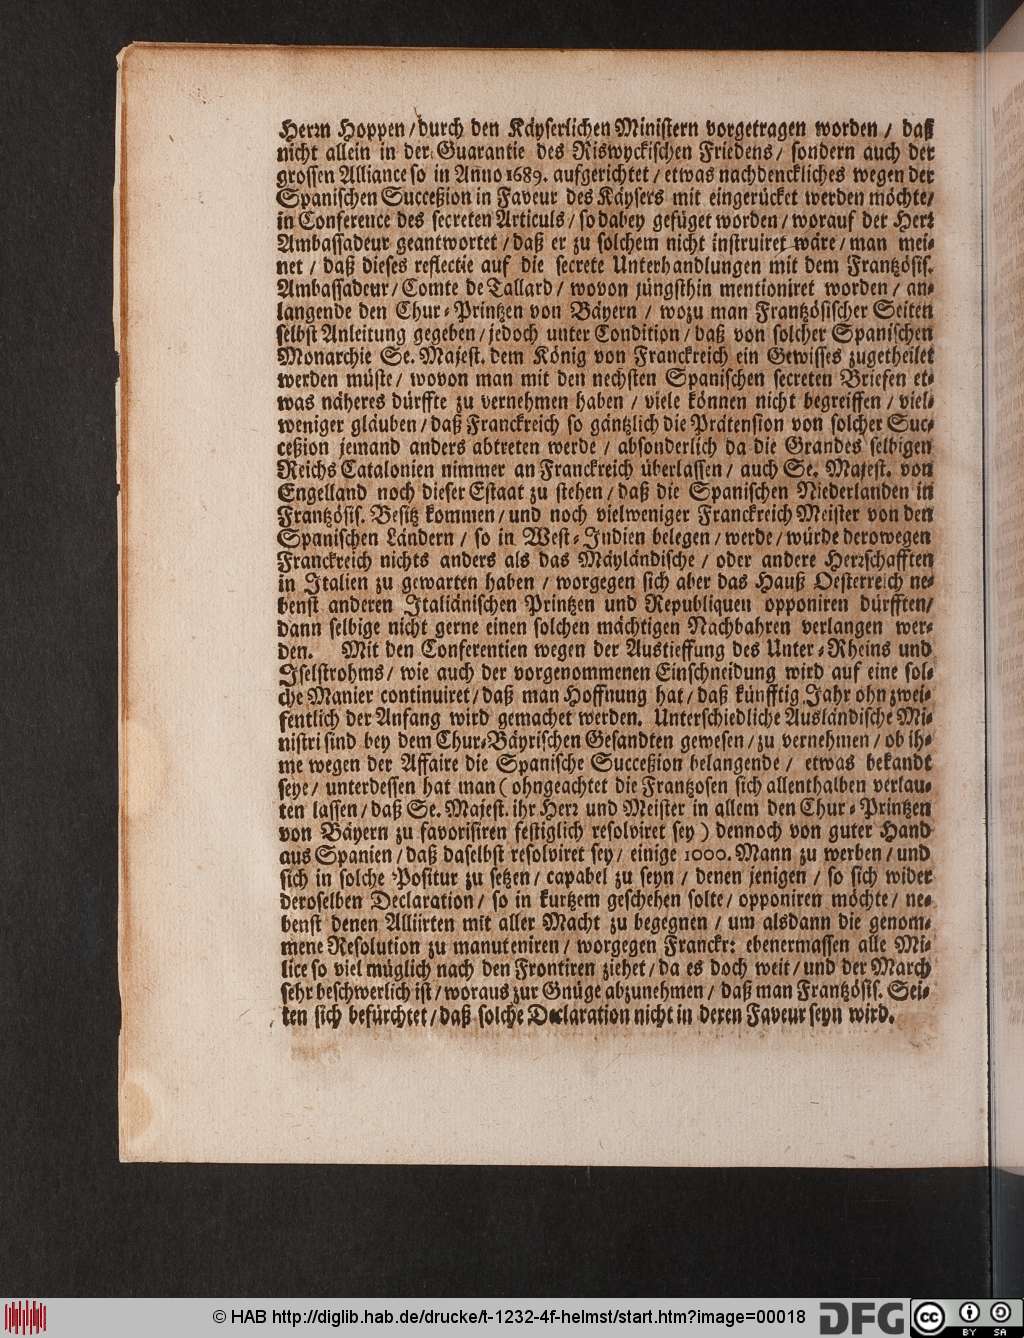 Herrn Hoppen / durch den Käyserlichen Ministern vorgetragen worden / daß
nicht allein in der Guarantie des Riswyckischen Friedens / sondern auch der
grossen Alliance so in Anno 1689. aufgerichtet / etwas nachdenckliches wegen der
Spanischen Succeßion in Faveur des Käysers mit eingerücket werden möchte /
in Conference des secreten Articuls / so dabey gefüget worden / worauf der Herr
Ambassadeur geantwortet / daß er zu solchem nicht instruiret wäre / man mei-
net / daß dieses reflectie auf die secrete Unterhandlungen mit dem Frantzösis.
Ambassadeur / Comte de Tallard / wovon jüngsthin mentioniret worden / an-
langende den Chur-Printzen von Bäyern / wozu man Frantzösischer Seiten
selbst Anleitung gegeben / jedoch unter Condition / daß von solcher Spanischen
Monarchie Se. Majest. dem König von Franckreich ein Gewisses zugetheilet
werden müste / wovon man mit den nechsten Spanischen secreten Briefen et-
was näheres dürffte zu vernehmen haben / viele können nicht begreiffen / viel-
weniger gläuben / daß Franckreich so gäntzlich die Prätension von solcher Suc-
ceßion jemand anders abtreten werde / absonderlich da die Grandes selbigen
Reichs Catalonien nimmer an Franckreich überlassen / auch Se. Majest. von
Engelland noch dieser Estaat zu stehen / daß die Spanischen Niederlanden in
Frantzösis. Besitz kommen / und noch vielweniger Franckreich Meister von den
Spanischen Ländern / so in West-Indien belegen / werde / würde derowegen
Franckreich nichts anders als das Mäyländische / oder andere Herrschafften
in Italien zu gewarten haben / worgegen sich aber das Hauß Oesterreich ne-
benst anderen Italiänischen Printzen und Republiquen opponiren dürfften /
dann selbige nicht gerne einen solchen mächtigen Nachbahren verlangen wer-
den. Mit den Conferentien wegen der Austieffung des Unter-Rheins und
Iselstrohms / wie auch der vorgenommenen Einschneidung wird auf eine sol-
che Manier continuiret / daß man Hoffnung hat / daß künfftig Jahr ohn zwei-
fentlich der Anfang wird gemachet werden. Unterschiedliche Ausländische Mi-
nistri sind bey dem Chur-Bäyrischen Gesandten gewesen / zu vernehmen / ob ih-
me wegen der Affaire die Spanische Succeßion belangende / etwas bekandt
seye / unterdessen hat man ( ohngeachtet die Frantzosen sich allenthalben verlau-
ten lassen / daß Se. Majest. ihr Herr und Meister in allem den Chur-Printzen
von Bäyern zu favorisiren festiglich resolviret sey ) dennoch von guter Hand
aus Spanien / daß daselbst resolviret sey / einige 1000. Mann zu werben / und
sich in solche Positur zu setzen / capabel zu seyn / denen jenigen / so sich wider
deroselben Declaration / so in kurtzem geschehen solte / opponiren möchte / ne-
benst denen Alliirten mit aller Macht zu begegnen / um alsdann die genom-
mene Resolution zu manuteniren / worgegen Franckr: ebenermassen alle Mi-
lice so viel müglich nach den Frontiren ziehet / da es doch weit / und der March
sehr beschwerlich ist / woraus zur Gnüge abzunehmen / daß man Frantzösis. Sei-
ten sich befürchtet / daß solche Declaration nicht in deren Faveur seyn wird.
© HAB http://diglib.hab.de/drucke/t-1232-4f-helmst/start.htm?image=00018
DFG
cc BY SA